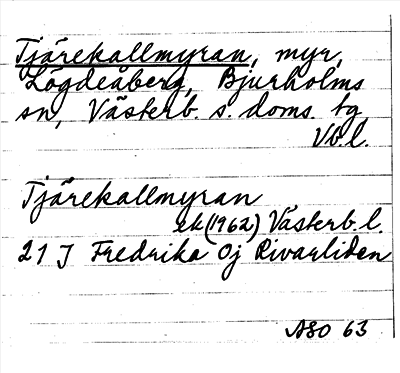 Tjärekallmyran, myr,
Lögdeåberg, Bjurholms
sn, Västerb. s. doms. tg
Vb.l.
Tjärekallmyran
ek (1962) Västerb.l.
21 J Fredrika Öj Rivarliden
ASO 63